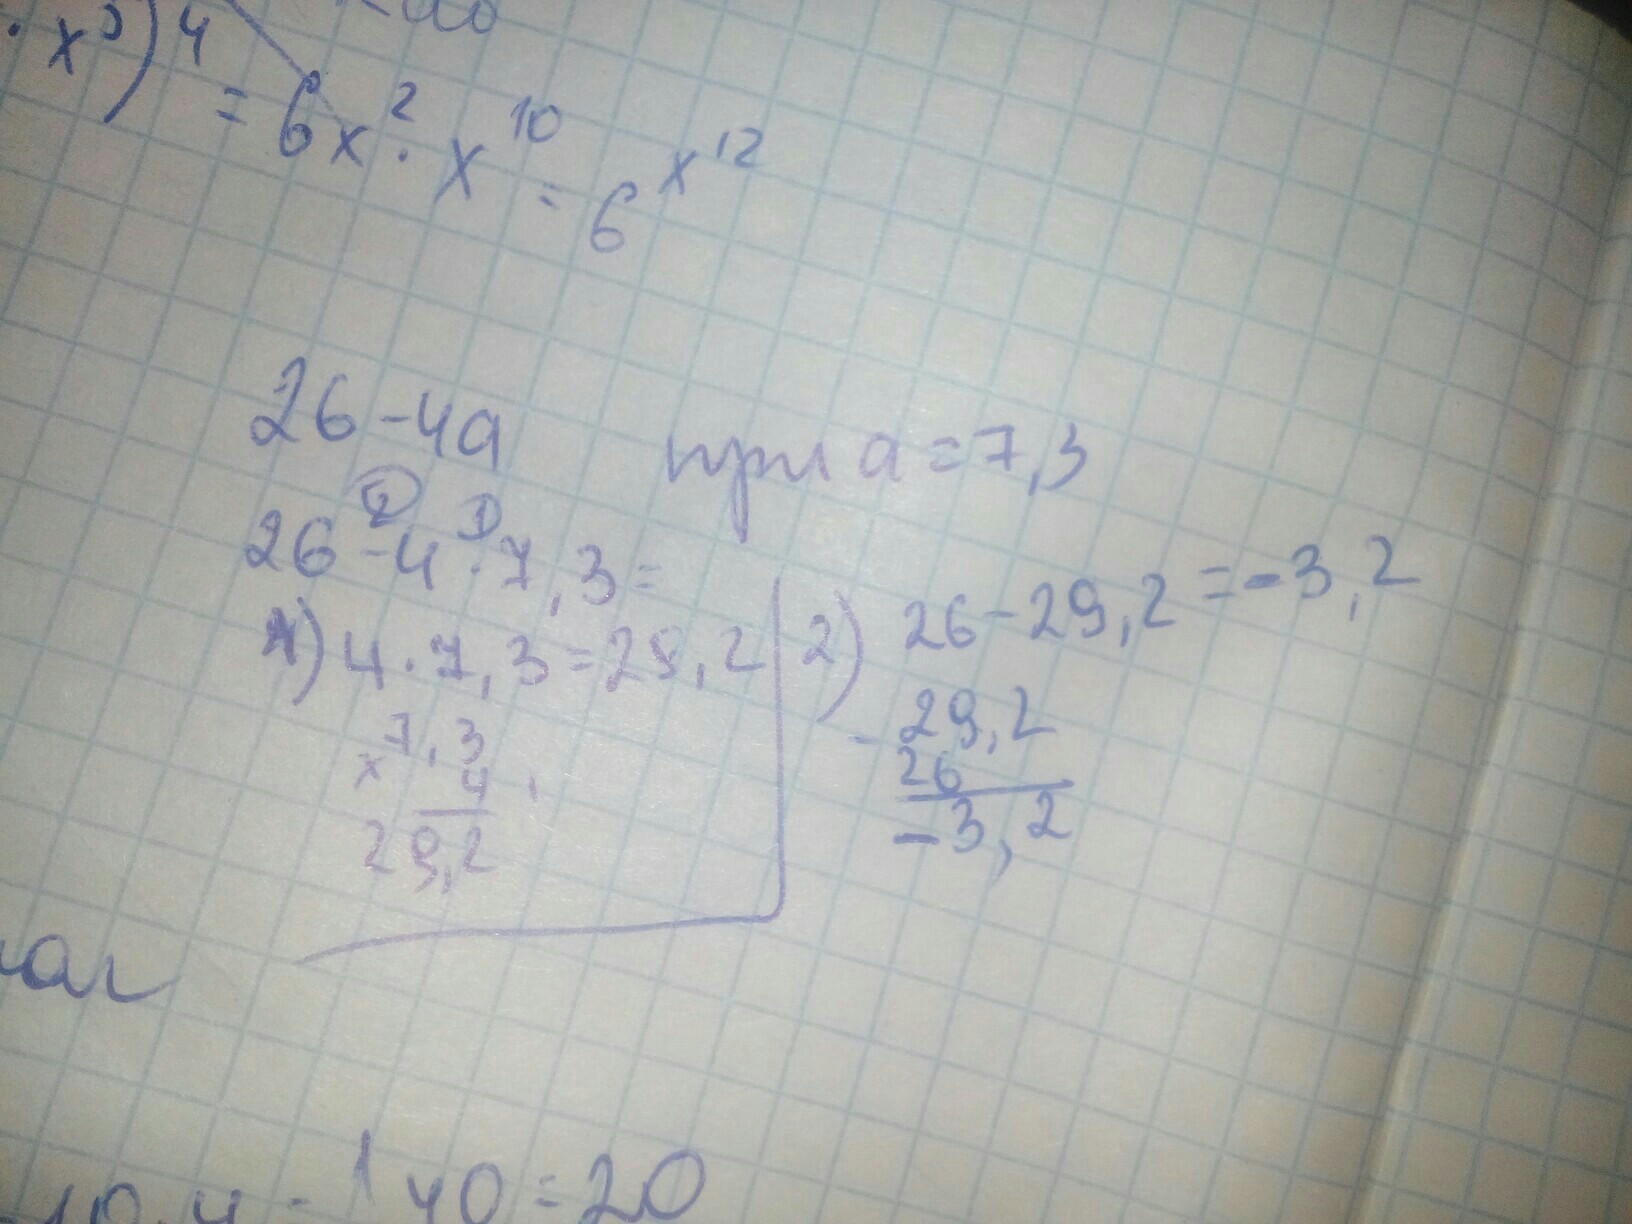 · x⁵)⁴ = 6x² · x¹⁰ = 6x¹²
26 - 4a при a = 7,3
26 - 4 · 7,3 =
1) 4 · 7,3 = 29,2
× 7,3
4
29,2
2) 26 - 29,2 = -3,2
- 29,2
26
-3,2
40 = 20